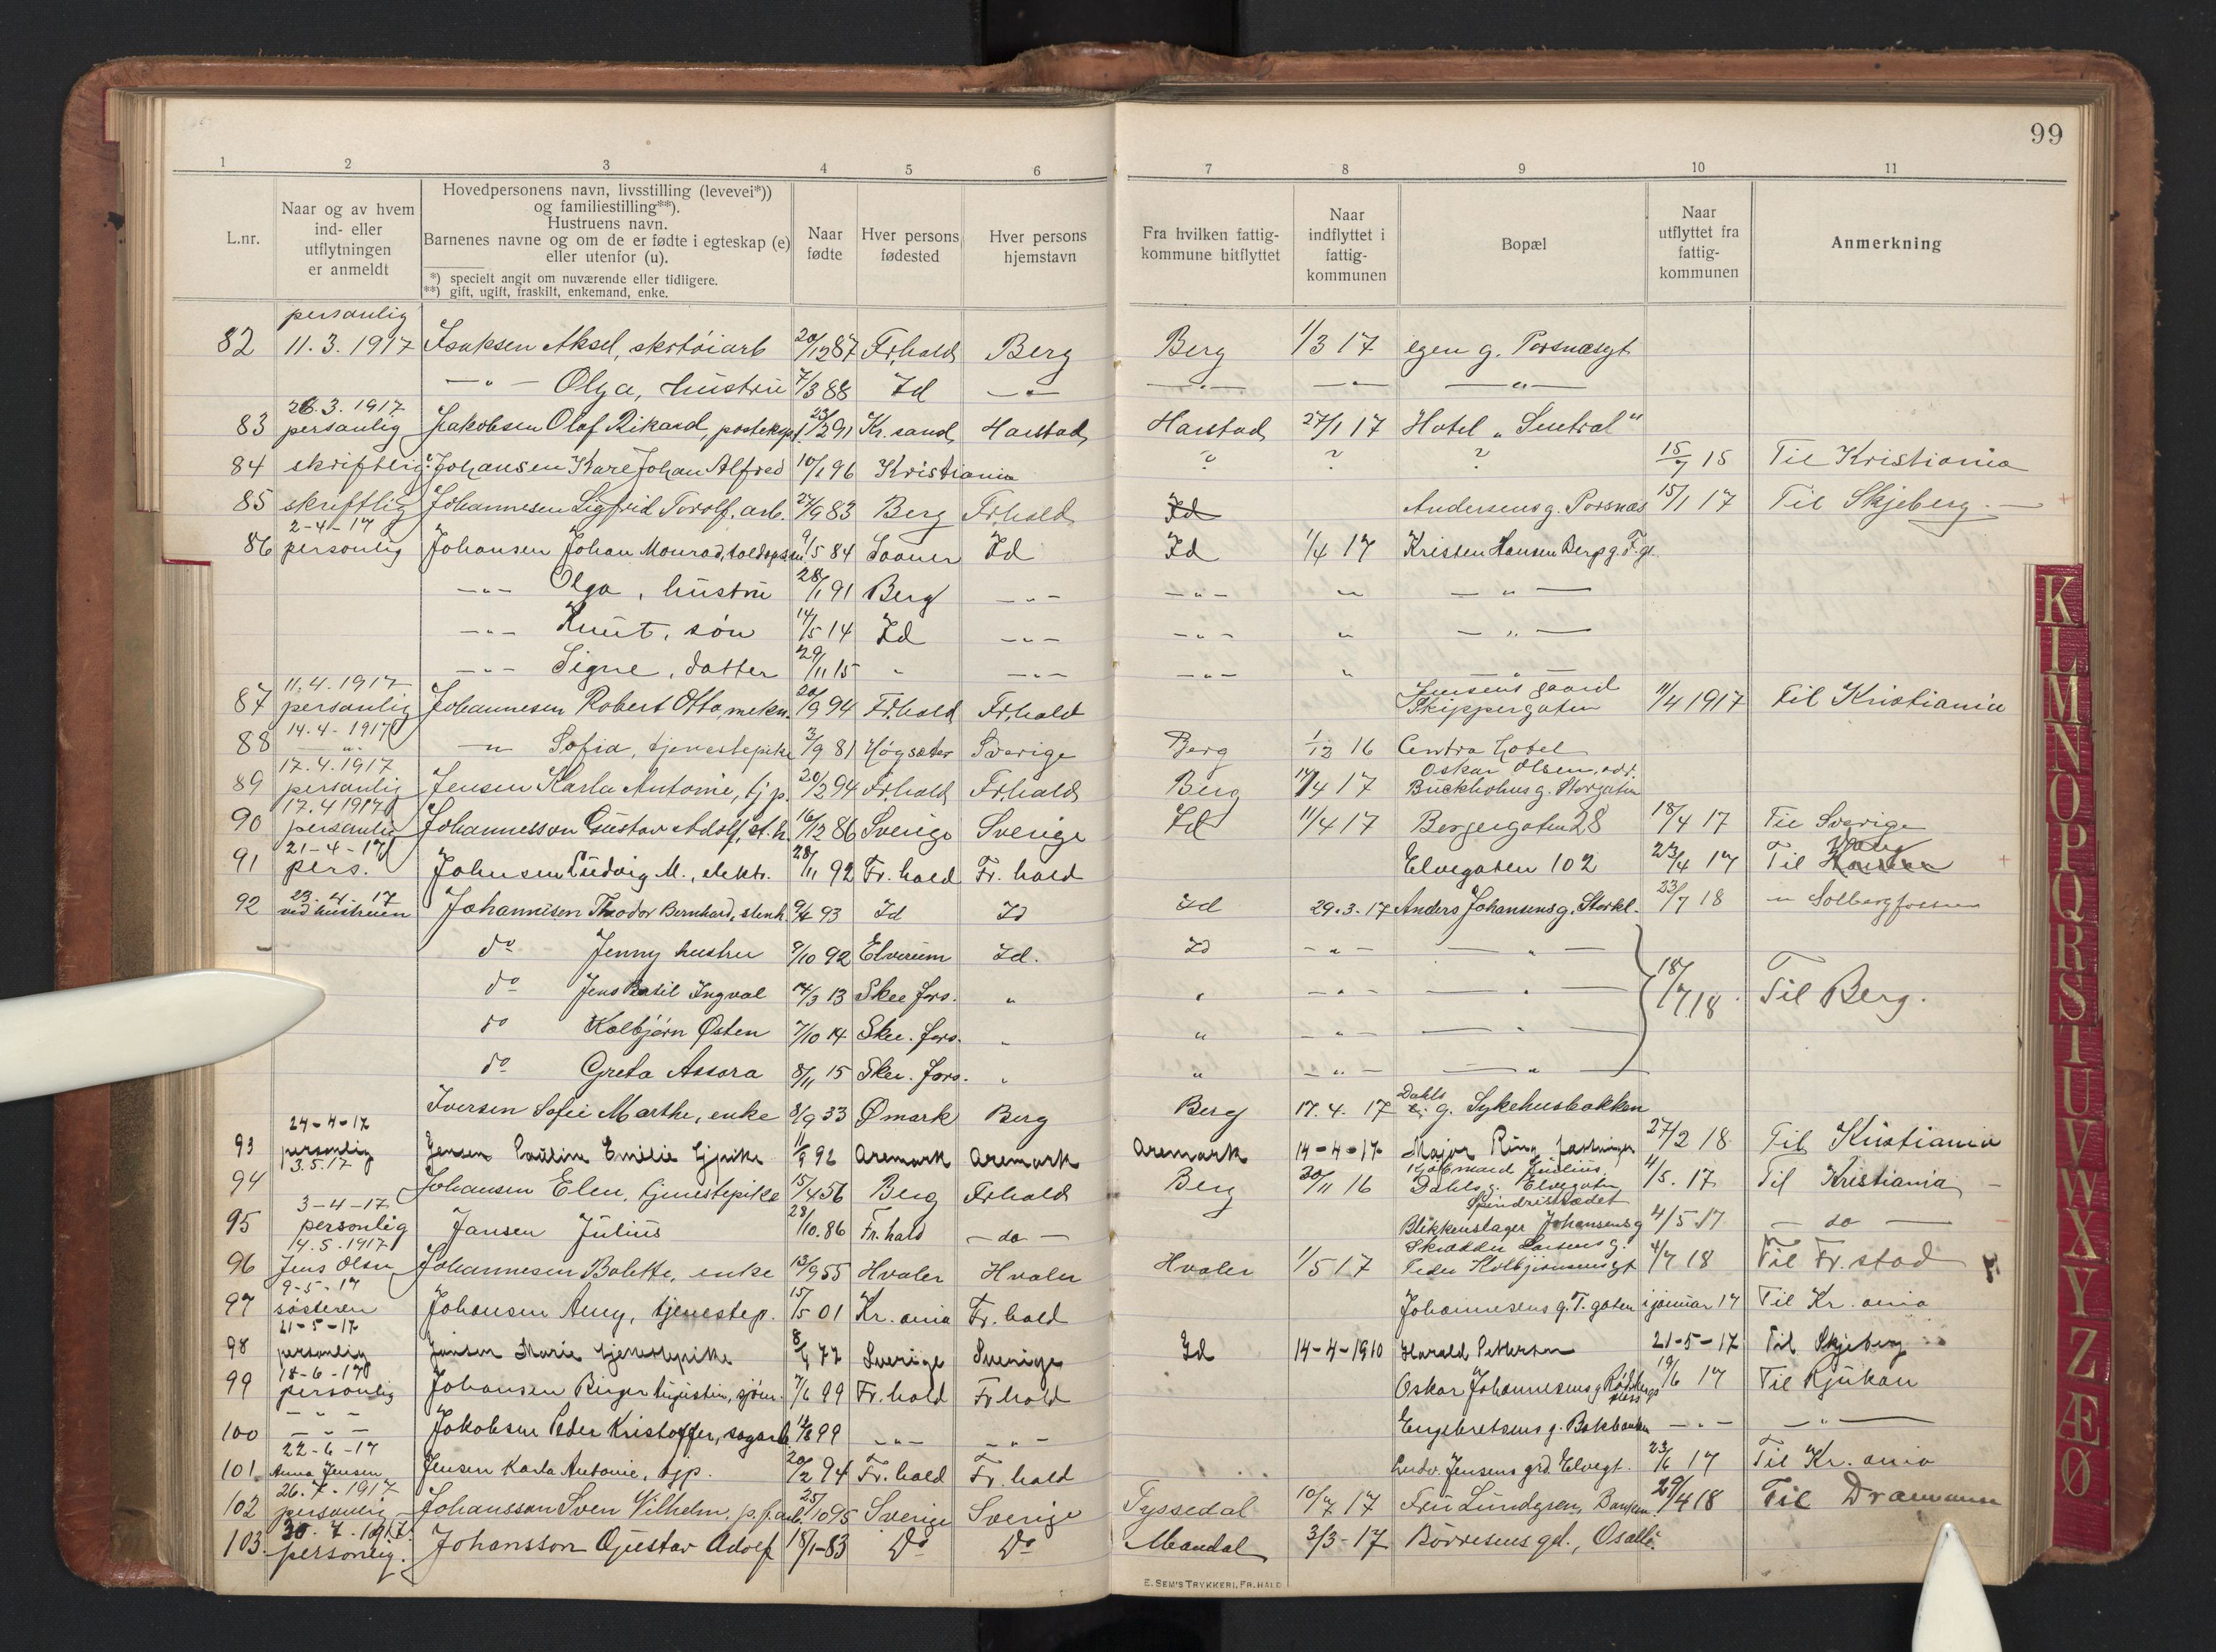 99
1 2 3 4 5 6 7 8 9 10 11
L.nr.
Naar og av hvem
ind- eller
utflytningen
er anmeldt
Hovedpersonens navn, livsstilling (levevei*))
og familiestilling**).
Hustruens navn.
Barnenes navne og om de er fødte i egteskap (e)
eller utenfor (u).
*) specielt angit om nuværende eller tidligere.
**) gift, ugift, fraskilt, enkemand, enke.
Naar
fødte
Hver persons
fødested
Hver persons
hjemstavn
Fra hvilken fattig-
kommune hitflyttet
Naar
indflyttet i
fattig-
kommunen
Bopæl
Naar
utflyttet fra
fattig-
kommunen
Anmerkning
personlig
82 11.3.1917 Isaksen Aksel, skotøiarb 20/12 87 Fr.hald Berg Berg 1/3 17 egen g. Porsnæsgt
—"— Olga, hustru 7/3 88 Id —"— —"— —"— —"—
26.3.1917
83 personlig Jakobsen Olaf Rikard, posteksp. 23/12 91 Kr.sand Harstad Harstad 27/1 17 Hotel „Sentral"
84 skriftlig Johansen Kare Johan Alfred 10/1 96 Kristiania ? ? ? 15/7 15 Til Kristiania
85 skriftlig Johannesen Sigfrid Torolf, arb. 27/9 83 Berg Fr.hald Id Andersens g. Porsnæs 15/1 17 Til Skjeberg.
2-4-17
86 personlig Johansen Johan Monrad, toldopsm. 9/5 84 Id Id 1/4 17 Kristen Hansen Berg g. T.gt.
—"— Olga, hustru 28/1 91 Berg —"— —"— " —"—
—"— Knut, søn 14/5 14 Id —"— —"— " —"—
—"— Signe, datter 29/11 15 " —"— —"— " —"—
11.4.1917 Jensens gaard
87 personlig Johannesen Robert Otto, mekn. 20/9 94 Fr.hald Fr.hald Skippergaten 11/4 1917 Til Kristiania
14.4-1917
88 —"— —"— Sofia, tjenestepike 3/9 81 Høgsæter Sverige Berg 1/12 16 Centra Hotel
17.4.1917 Oskar Olsen
89 personlig Jensen Karla Antonie, tjp. 20/2 94 Fr.hald Fr.hald Berg 14/4 17 Buckholms g. Storgaten
17.4 1917
90 personlig Johannesson Gustav Adolf, st.h. 16/12 86 Sverige Sverige Id 11/4 17 Borgergaten 28 18/4 17 Til Sverige
21-4-17 Vang
91 pers. Johnsen Ludvig M., elektr. 28/11 92 Fr.hald Fr.hald Elvegaten 102 23/4 17 Til
23.4.17
92 ved hustruen Johannesen Theodor Bernhard, stenh. 9/4 93 Id Id Id 29.3.17 Anders Johansens g. Storkl. 23/7 18 " Solbergfossen
do Jenny hustru 9/10 92 Elverum Id. Id —"— —"—
do Jens Bertil Ingval 14/3 13 Skee fors. " " —"— —"— 18/7 18. Til Berg.
do Kolbjørn Østen 7/10 14 Skee. fors. " " —"— —"—
do Greta Assora 8/11 15 Skee. fors. " " —"— —"—
Dahls
Iversen Sofie Marthe, enke 8/9 33 Ømark Berg Berg 17.4.17 g. Sykehusbakken
24-4-17
93 personlig Jensen Pauline Emilie tjpike 11/9 92 Aremark Aremark Aremark 14-4-17 Major Ring 27/2 18 Til Kristiania
3.5.17
94 Johansen Elen, tjenestepike 15/4 56 Berg Fr.hald Berg 30/11 16 Dahls g. Elvegaten 4/5.17 Til Kristiania
3-4-17
95 personlig Jansen Julius 28/10.86 Fr.hald — do — Blikkenslager Johansens g 4/5 17 — do —
14.5.1917 Skrædder Larsens g.
96 Jens Olsen Johannesen Bolette, enke 13/9 55 Hvaler Hvaler Hvaler 1/5 17 Peder Kolbjørnsens gt 4/7 18 Til Fr.stad
9-5-17
97 søsteren Johansen Amy, tjenestep. 15/5 01 Kr.ania Fr.hald Johannesens g. T.gaten i januar 17 Til Kr.ania
21-5-17
98 personlig Jonsen Marie tjenestepike 77 Sverige Sverige Id 14-4-1910 Harald Pettersen 21-5-17 Til Skjeberg
18-6-17
99 personlig Johansen Birger Augustin, sjøm. 7/6 99 Fr.hald Fr.hald Oskar Johannesens g Rødsbergs plass 19/6 17 Til Rjukan
—"—
100 —"— Jakobsen Peder Kristoffer, sagarb. 99 —"— —"— Engebretsens g. Bakbanken —"— —"—
22-6-17
101 Anna Jensen Jensen Karla Antonie, tjp. 20/2 94 Fr.hald Fr.hald Ludv. Jensens grd. Elvegt. 23/6 17 Til Kr.ania
26.7.1917
102 personlig Johansson Sven Vilhelm, p.f.arb. 25/10 95 Sverige Sverige Tyssedal 10/7 17 Fru Lundgren, Banken 29/4 18 Til Drammen
30.7.1917
103. personlig. Johansson Gustav Adolf 18/1-83 Do Do Mandal 3/3-17 Børresens gd., Osallé.
E. SEM'S TRYKKERI, FR.HALD
K
L
M
N
O
P
Q
R
S
T
U
V
W
X
Y
Z
Æ
Ø